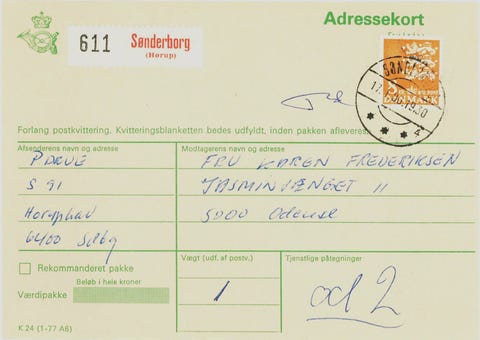 Adressekort
611 Sønderborg
(Hørup)
DANMARK
Forlang postkvittering. Kvitteringsblanketten bedes udfyldt, inden pakken afleveres.
Afsenderens navn og adresse
S 91
6400 Sdbg
Modtagerens navn og adresse
FRU KAREN FREDERIKSEN
JASMINVÆNGET 11
5000 Odense
Rekommanderet pakke
Beløb i hele kroner
Værdipakke
Vægt (udf. af postv.)
1
Tjenstlige påtegninger
od 2
K 24 (1-77 A6)